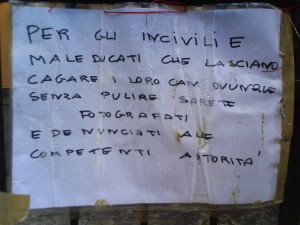 PER GLI INCIVILI E
MALEDUCATI CHE LASCIANO
CAGARE I LORO CANI OVUNQUE
SENZA PULIRE SARETE
FOTOGRAFATI
E DENUNCIATI ALLE
COMPETENTI AUTORITA'